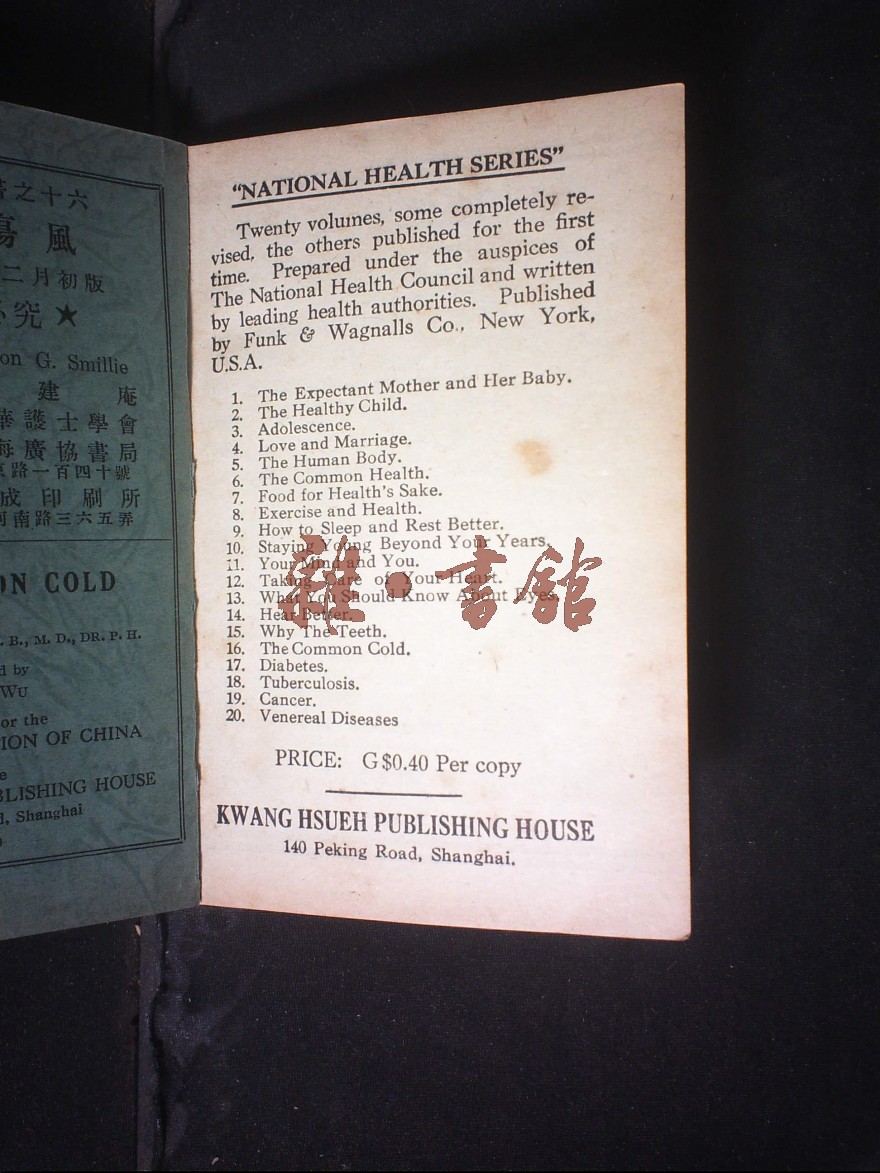 之十六
風
二月初版
究 ★
on G. Smillie
建 庵
護士學會
廣協書局
路一百四十號
成印刷所
河南路三六五弄
ON COLD
. B., M. D., DR. P. H.
d by
Wu
or the
ION OF CHINA
e
BLISHING HOUSE
d, Shanghai
"NATIONAL HEALTH SERIES"
Twenty volumes, some completely re-
vised, the others published for the first
time. Prepared under the auspices of
The National Health Council and written
by leading health authorities. Published
by Funk & Wagnalls Co., New York,
U.S.A.
1. The Expectant Mother and Her Baby.
2. The Healthy Child.
3. Adolescence.
4. Love and Marriage.
5. The Human Body.
6. The Common Health.
7. Food for Health's Sake.
8. Exercise and Health.
9. How to Sleep and Rest Better.
10. Staying Young Beyond Your Years.
11. Your Mind and You.
12. Taking Care of Your Heart.
13. What You Should Know About Eyes.
14. Hear Better.
15. Why The Teeth.
16. The Common Cold.
17. Diabetes.
18. Tuberculosis.
19. Cancer.
20. Venereal Diseases
雜·書館
PRICE: G$0.40 Per copy
KWANG HSUEH PUBLISHING HOUSE
140 Peking Road, Shanghai.